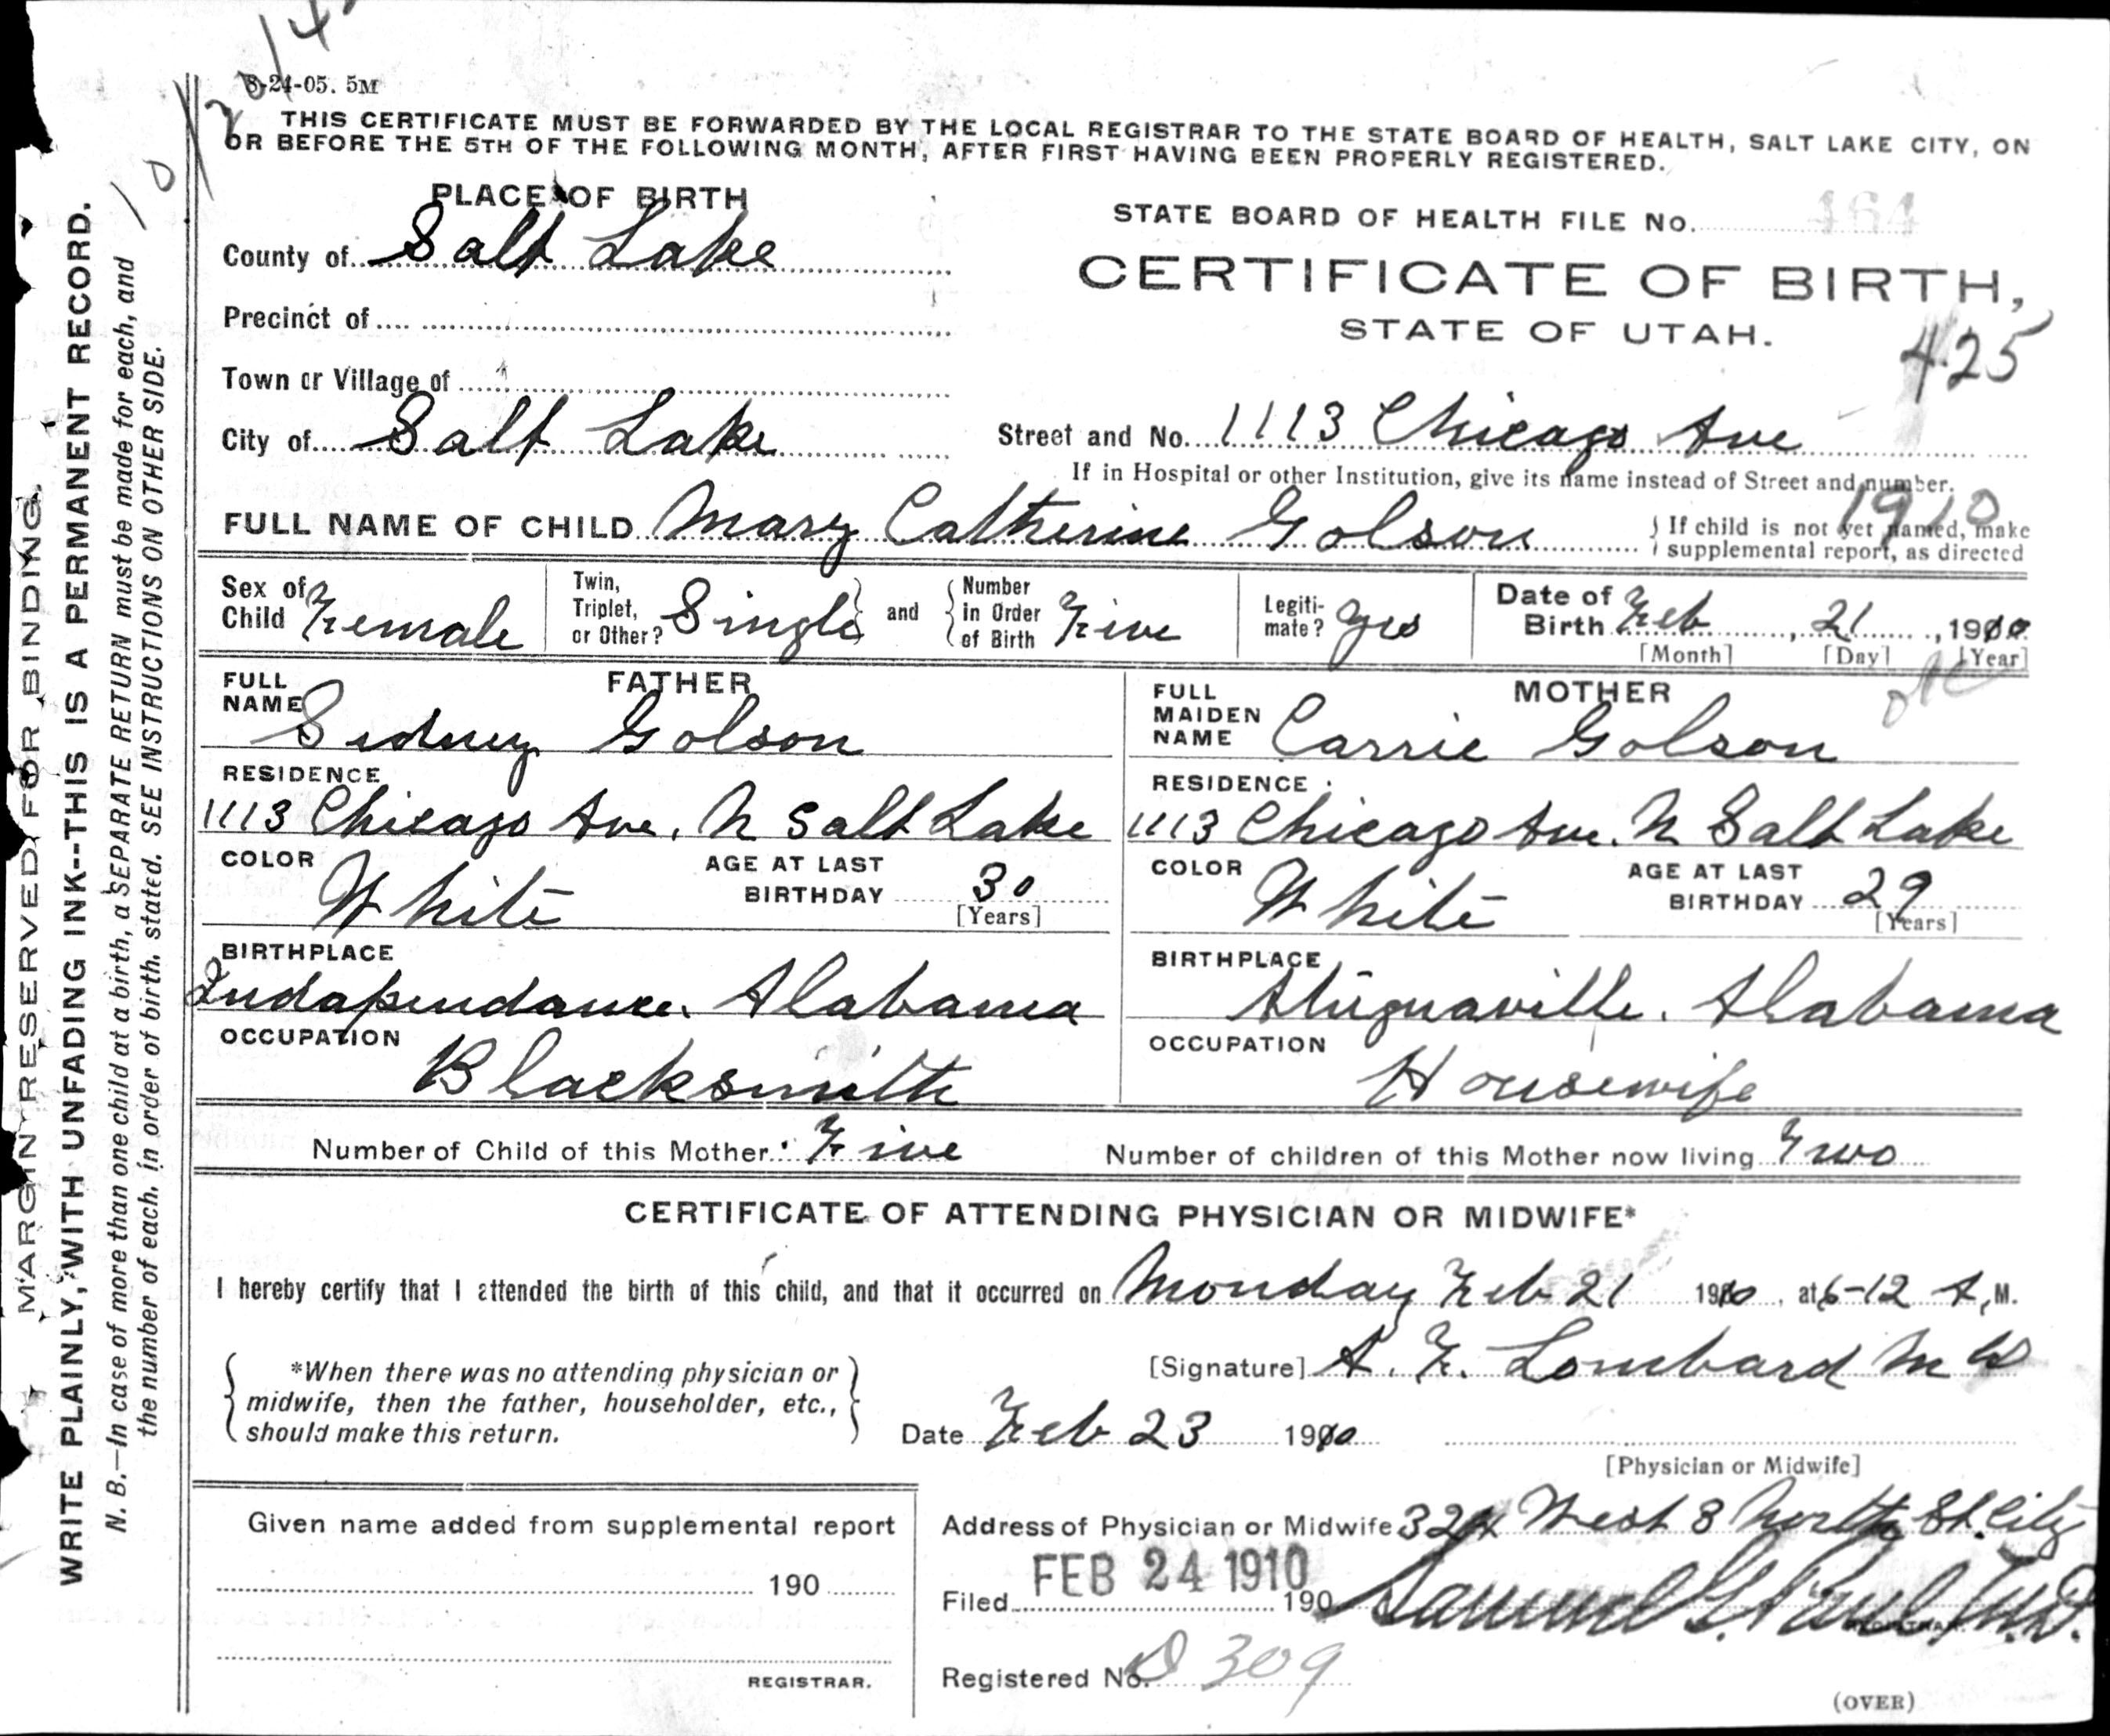 10/20/4
8-24-05. 5M
THIS CERTIFICATE MUST BE FORWARDED BY THE LOCAL REGISTRAR TO THE STATE BOARD OF HEALTH, SALT LAKE CITY, ON
OR BEFORE THE 5TH OF THE FOLLOWING MONTH, AFTER FIRST HAVING BEEN PROPERLY REGISTERED.
PLACE OF BIRTH
STATE BOARD OF HEALTH FILE No. 464
County of Salt Lake
CERTIFICATE OF BIRTH,
Precinct of
STATE OF UTAH.
425
Town or Village of
City of Salt Lake
Street and No. 1113 Chicago Ave
If in Hospital or other Institution, give its name instead of Street and number.
1910
FULL NAME OF CHILD Mary Catherine Golson
If child is not yet named, make
supplemental report, as directed
Sex of Child Female
Twin, Triplet, or Other? Single and Number in Order of Birth Five
Legiti-mate? Yes
Date of Birth Feb, 21, 1910
[Month] [Day] [Year]
OK
FATHER
FULL NAME Sidney Golson
MOTHER
FULL MAIDEN NAME Carrie Golson
RESIDENCE
1113 Chicago Ave. N Salt Lake
RESIDENCE
1113 Chicago Ave. N Salt Lake
COLOR White
AGE AT LAST BIRTHDAY 30
[Years]
COLOR White
AGE AT LAST BIRTHDAY 29
[Years]
BIRTHPLACE
Indapendance. Alabama
BIRTHPLACE
Alabama
OCCUPATION
Blacksmith
OCCUPATION
Housewife
Number of Child of this Mother Five
Number of children of this Mother now living Two
CERTIFICATE OF ATTENDING PHYSICIAN OR MIDWIFE*
I hereby certify that I attended the birth of this child, and that it occurred on Monday Feb 21 1910, at 6-12 A, M.
*When there was no attending physician or
midwife, then the father, householder, etc.,
should make this return.
[Signature] A. F. Lombard M D
Date Feb 23 1910
[Physician or Midwife]
Given name added from supplemental report
190
REGISTRAR.
Address of Physician or Midwife 324 West 3 North St. City
Filed FEB 24 1910 190 Samuel G. Paul, M.D.
REGISTRAR.
Registered No. D 309
(OVER)
MARGIN RESERVED FOR BINDING.
WRITE PLAINLY, WITH UNFADING INK--THIS IS A PERMANENT RECORD.
N. B.—In case of more than one child at a birth, a SEPARATE RETURN must be made for each, and
the number of each, in order of birth, stated. SEE INSTRUCTIONS ON OTHER SIDE.